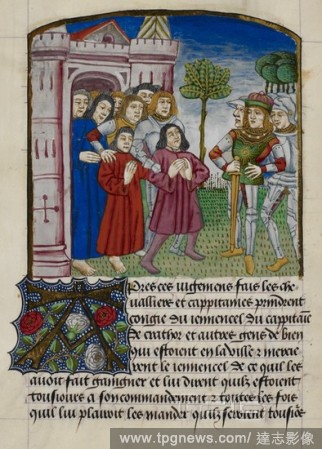 Apres ces iugemens fais les che
ualliers et cappitaines prindrent
congie du iennencel du capitaine
de crathor et autres gens de bien
qui estoient en la ville z mercie
rent le iennencel de ce quil les
auoit fait gaingner et lui dirent quilz estoient
tousiours a son commandement z toutes les fois
quil lui plairoit les mander quilz seroient tousio
www.tpgnews.com/達志影像